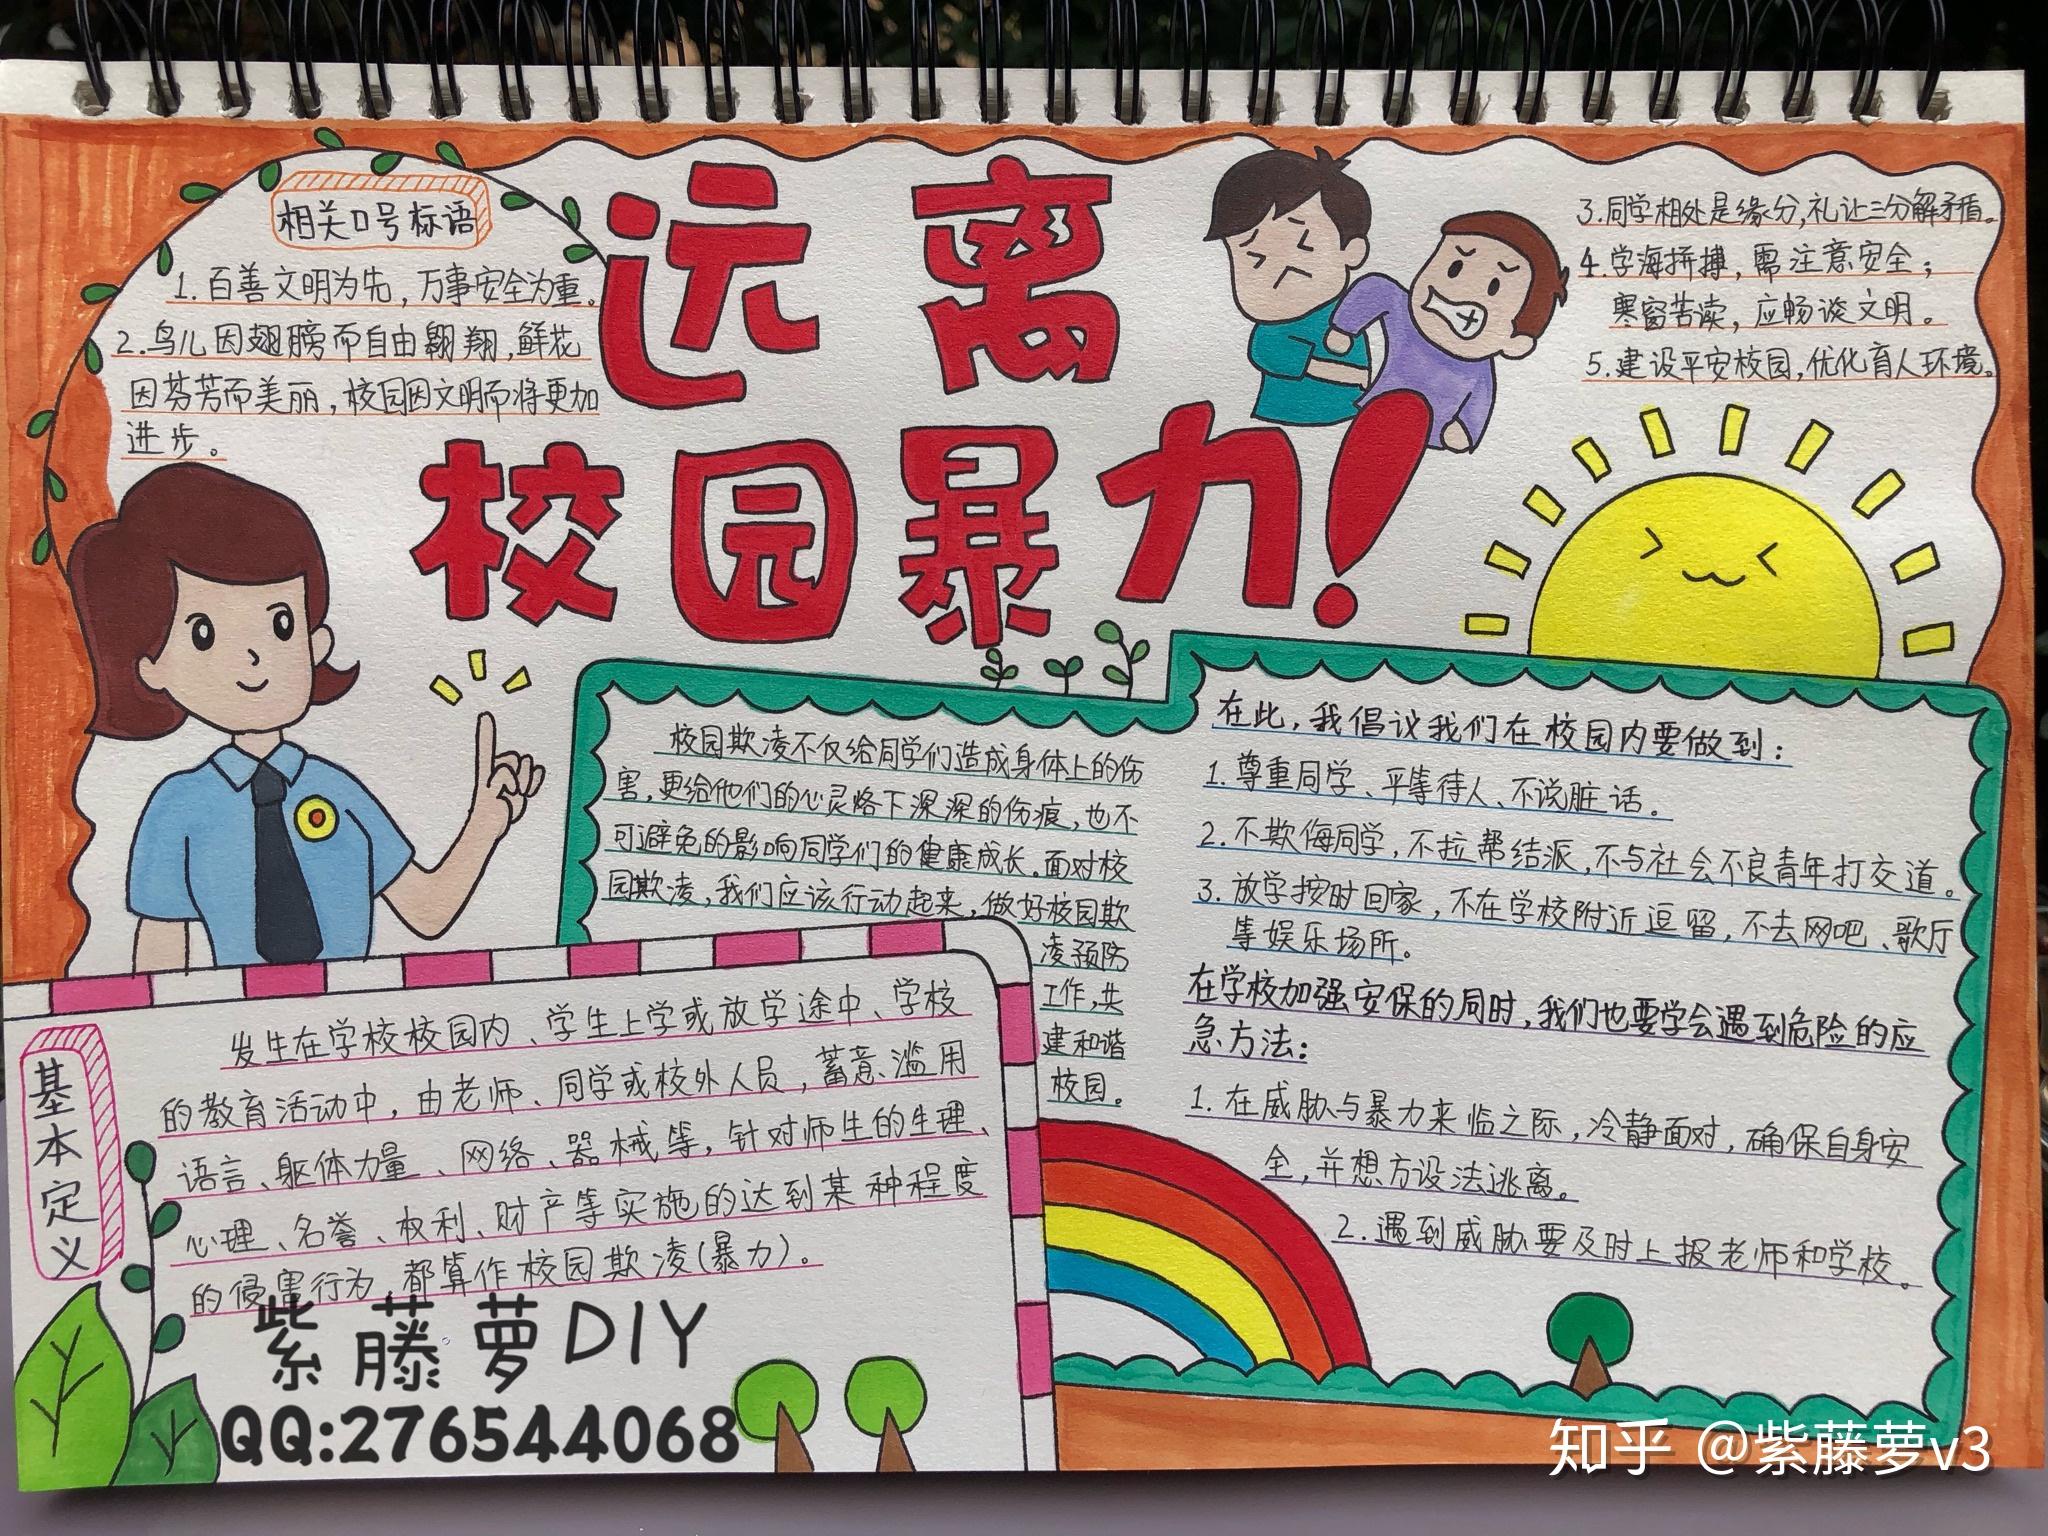 远离
校园暴力!
相关口号标语
1.百善文明为先,万事安全为重。
2.鸟儿因翅膀而自由翱翔,鲜花
因芬芳而美丽,校园因文明而将更加
进步。
3.同学相处是缘分,礼让三分解矛盾。
4.学海拼搏,需注意安全;
寒窗苦读,应畅谈文明。
5.建设平安校园,优化育人环境。
校园欺凌不仅给同学们造成身体上的伤
害,更给他们的心灵烙下深深的伤痕,也不
可避免的影响同学们的健康成长。面对校
园欺凌,我们应该行动起来,做好校园欺
凌预防
工作,共
建和谐
校园。
在此,我倡议我们在校园内要做到:
1.尊重同学、平等待人、不说脏话。
2.不欺侮同学,不拉帮结派,不与社会不良青年打交道。
3.放学按时回家,不在学校附近逗留,不去网吧、歌厅
等娱乐场所。
在学校加强安保的同时,我们也要学会遇到危险的应
急方法:
1.在威胁与暴力来临之际,冷静面对,确保自身安
全,并想方设法逃离。
2.遇到威胁要及时上报老师和学校。
基本定义
发生在学校校园内、学生上学或放学途中、学校
的教育活动中,由老师、同学或校外人员,蓄意、滥用
语言、躯体力量、网络、器械等,针对师生的生理、
心理、名誉、权利、财产等实施的达到某种程度
的侵害行为,都算作校园欺凌(暴力)。
紫藤萝DIY
QQ:276544068
知乎 @紫藤萝v3